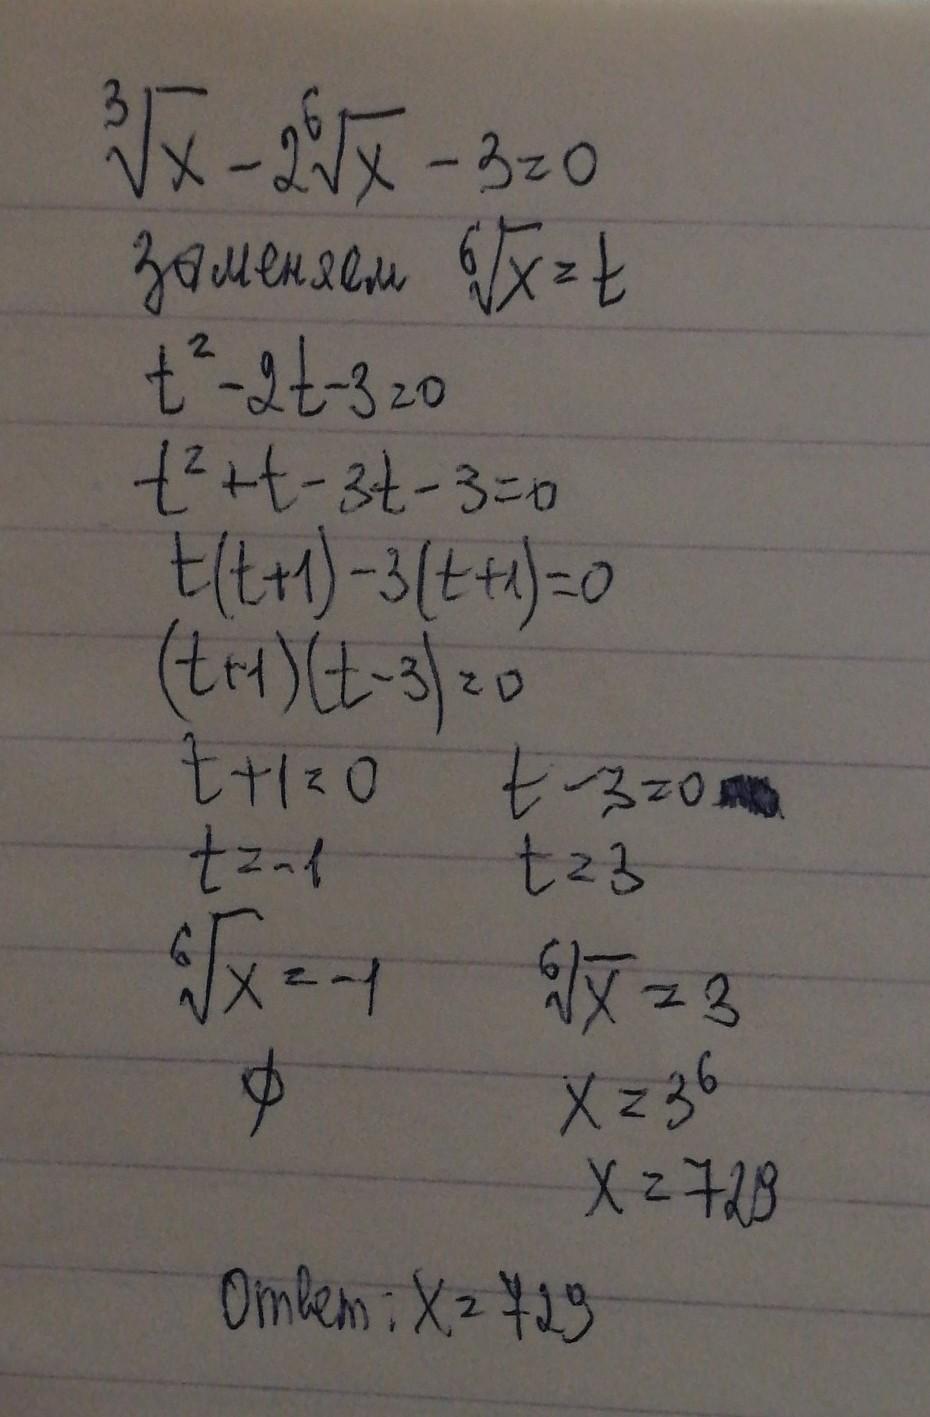 ³√x - 2⁶√x - 3 = 0
заменяем ⁶√x = t
t² - 2t - 3 = 0
t² + t - 3t - 3 = 0
t(t+1) - 3(t+1) = 0
(t+1)(t-3) = 0
t + 1 = 0 t - 3 = 0
t = -1 t = 3
⁶√x = -1 ⁶√x = 3
∅ x = 3⁶
x = 729
Ответ: x = 729